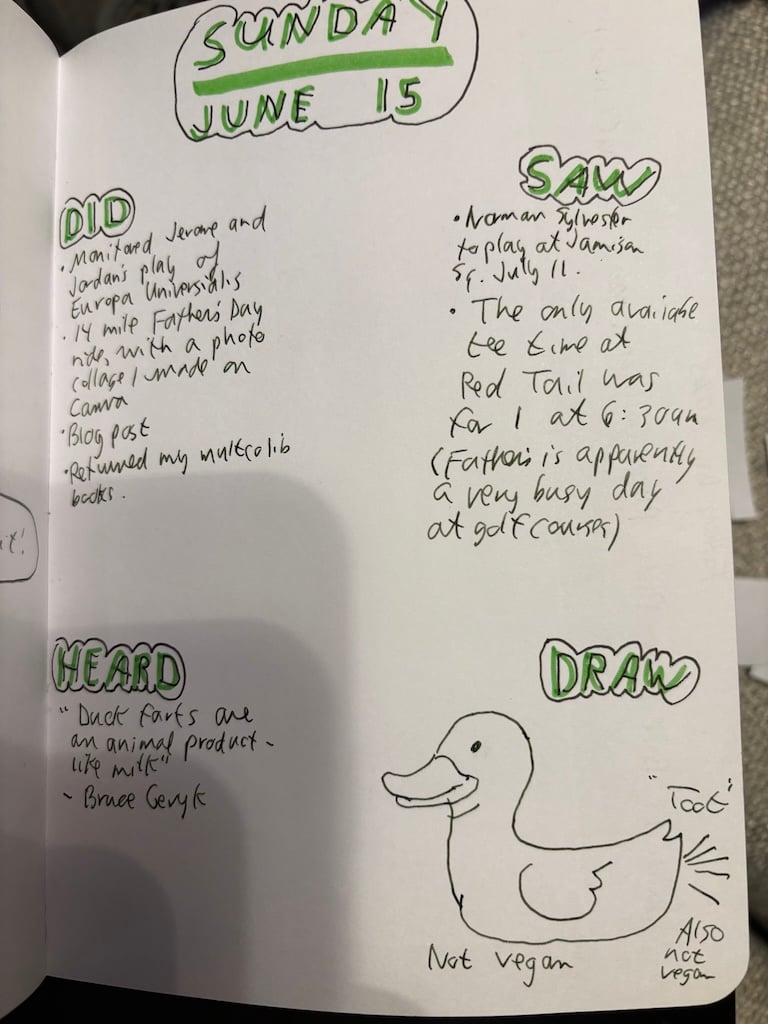 SUNDAY
JUNE 15
DID
• Monitored Jerome and
Jordan's play of
Europa Universalis
• 14 mile Father's Day
ride, with a photo
collage I made on
Canva
• Blog post
• Returned my multcolib
books.
SAW
• Norman Sylvester
to play at Jamison
Sq. July 11.
• The only available
tee time at
Red Tail was
for 1 at 6:30am
(Father's is apparently
a very busy day
at golf courses)
HEARD
"Duck farts are
an animal product -
like milk"
- Bruce Geryk
DRAW
"Toot"
Not vegan
Also
not
vegan